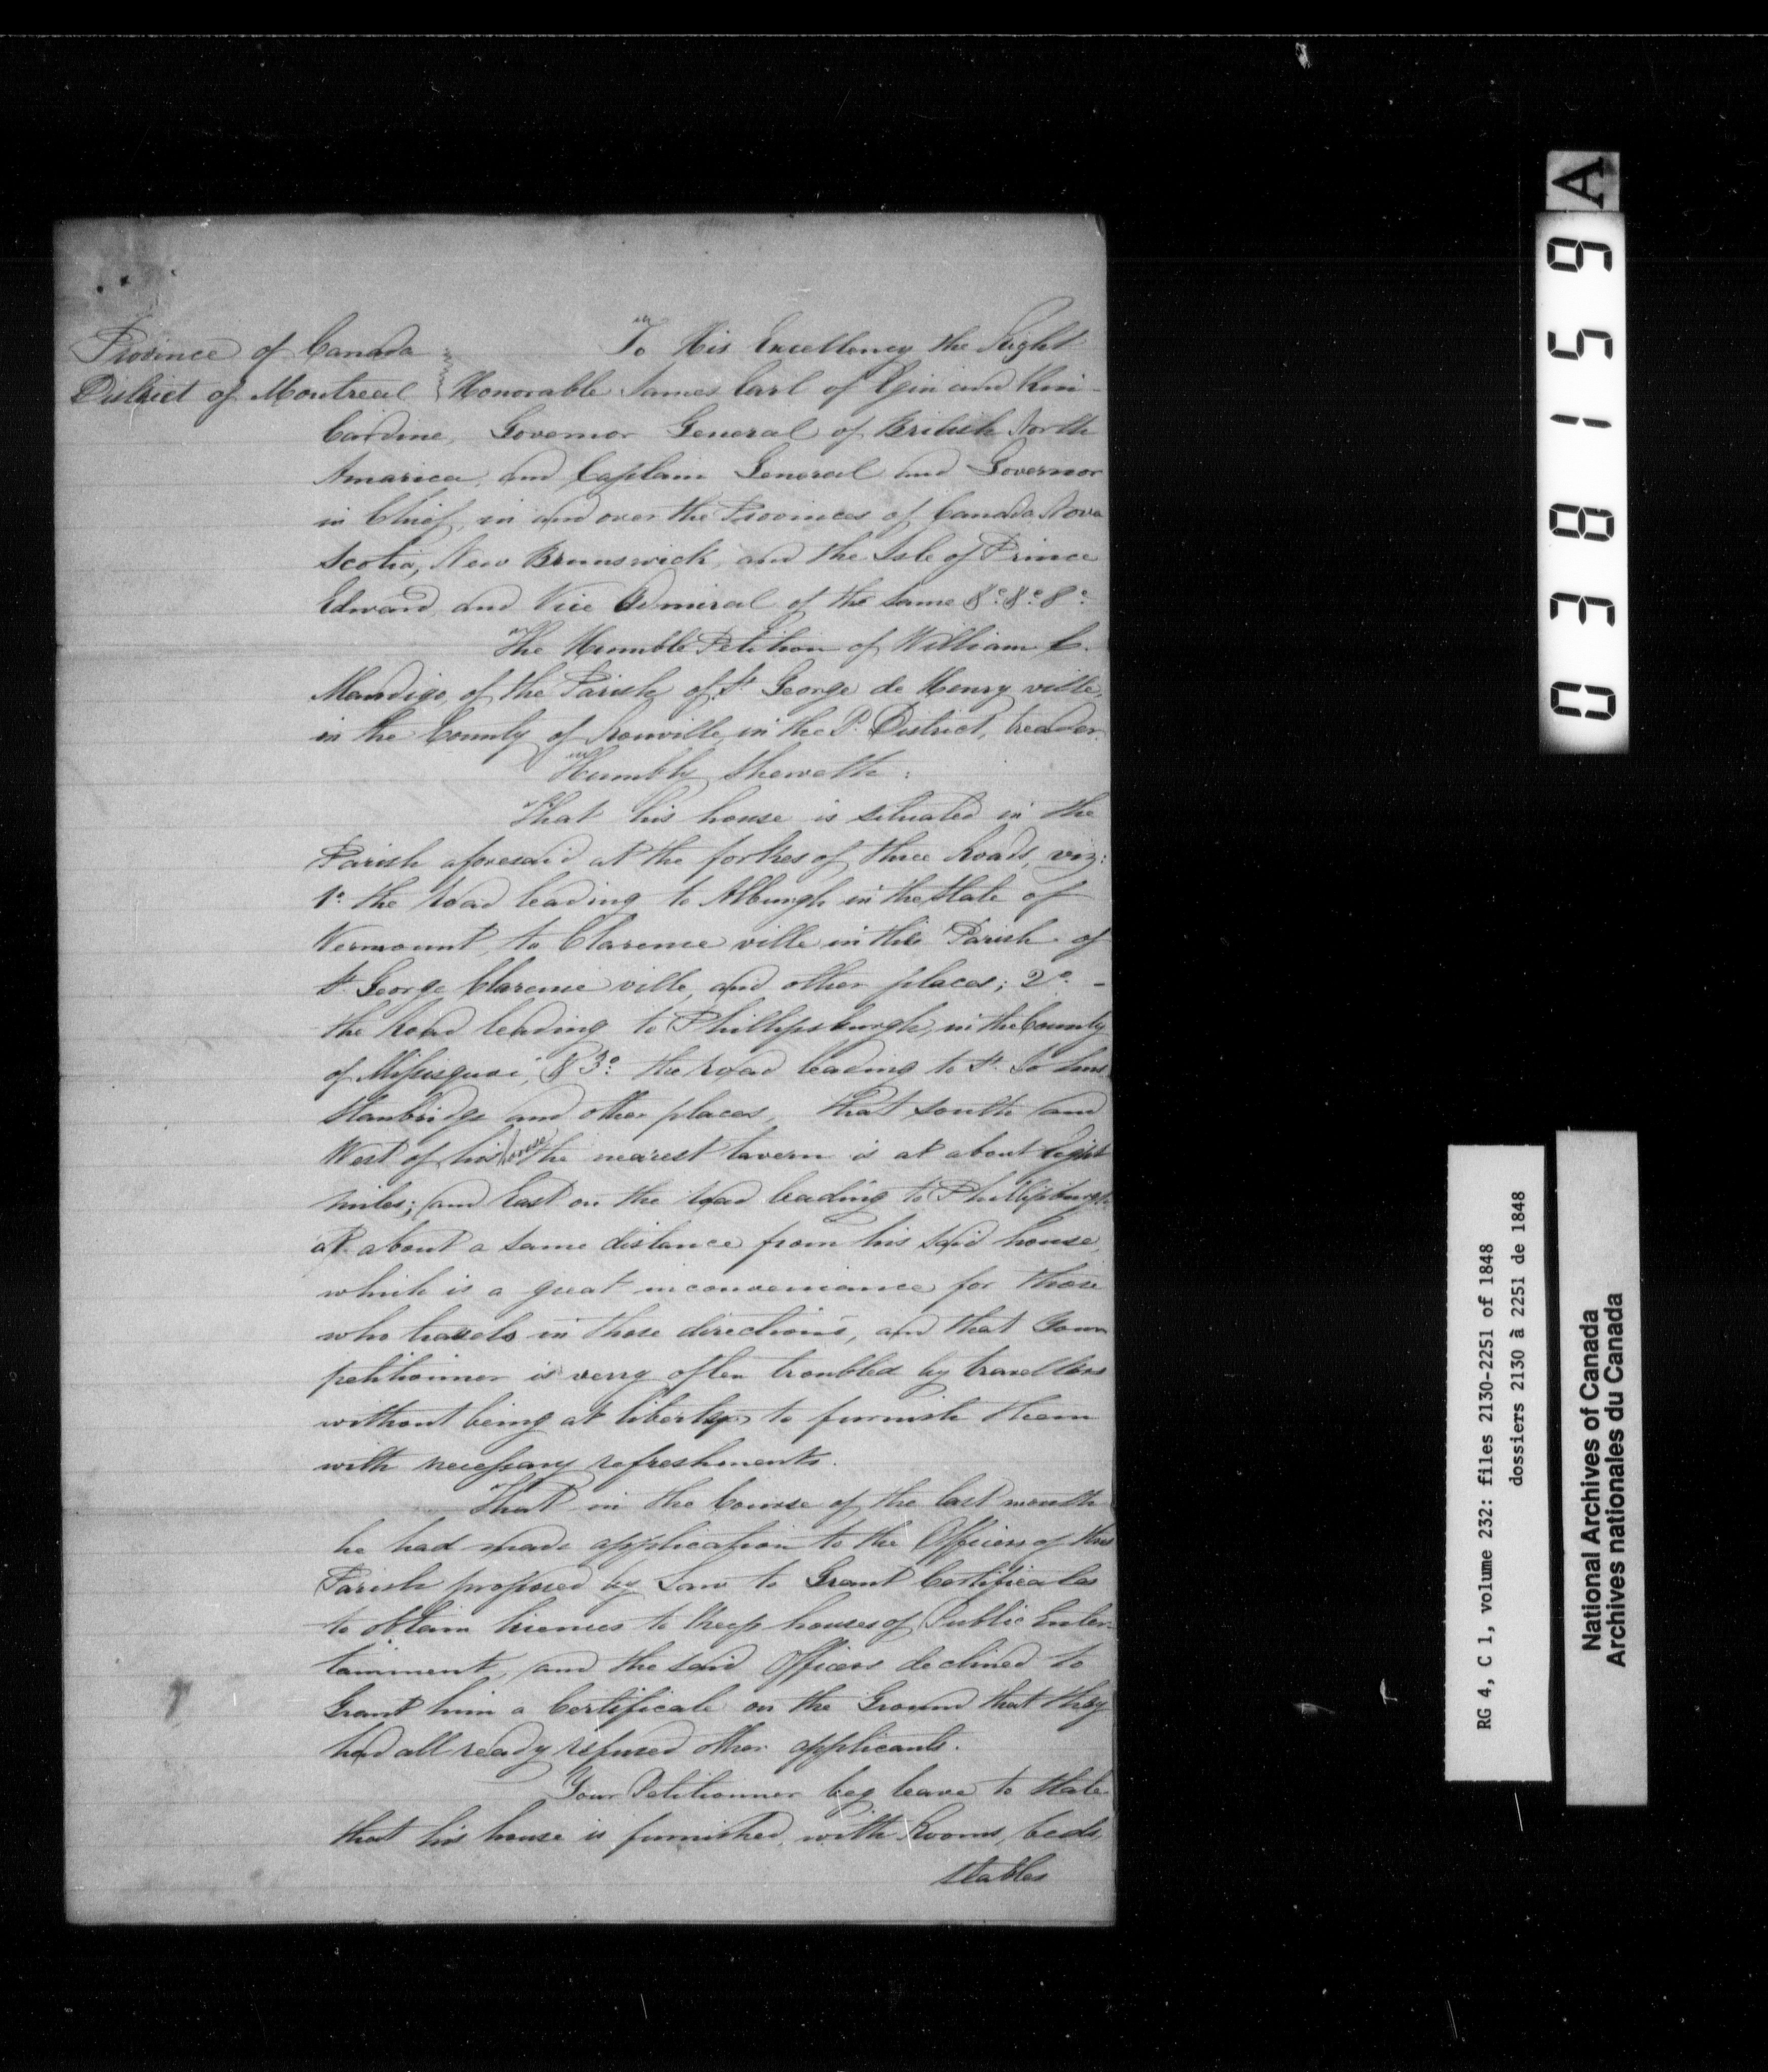 Province of Canada
District of Montreal
To His Excellency the Right
Honorable James Earl of Elgin and Kin-
Cardine, Governor General of British North
America, and Captain General and Governor
in Chief, in and over the Provinces of Canada Nova
Scotia, New Brunswick, and the Isle of Prince
Edward, and Vice Admiral of the same &c. &c. &c.
The Humble Petition of William C.
Mandigo, of the Parish of St George de Henry ville,
in the County of Rouville, in the P. District, trader.
Humbly Sheweth:
That his house is situated in the
Parish aforesaid at the forkes of three Roads, viz:
1o. the road leading to Alburgh in the State of
Vermount, to Clarence ville in this Parish of
St George Clarence ville, and other places; 2o. -
the Road leading to Phillipsburgh, in the County
of Missisquoi, & 3o. the road leading to St Johns
Stanbridge and other places, that south and
West of his house the nearest tavern is at about Eight
miles; and East on the road leading to Phillipsburgh
at about a same distance from his said house,
which is a great inconveniance for those
who travels in those directions, and that Your
petitionner is verry often troubled by travellers
without being at liberty to furnish them
with necessary refreshments.
That in the Course of the last month
he had made application to the Officers of this
Parish proposed by Law to Grant Certificates
to obtain licences to Keep houses of Public Enter-
tainment, and the said Officers declined to
Grant him a Certificate on the Ground that they
had all ready refused other applicants.
Your Petitionner beg leave to state
that his house is furnished, with Rooms, beds,
stables
038159 A
RG 4, C 1, volume 232: files 2130-2251 of 1848
dossiers 2130 à 2251 de 1848
National Archives of Canada
Archives nationales du Canada